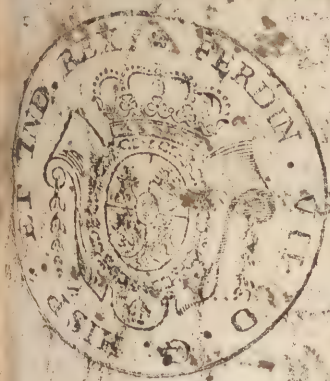 FERDIN · VII · D · G · HISP · ET IND · REX